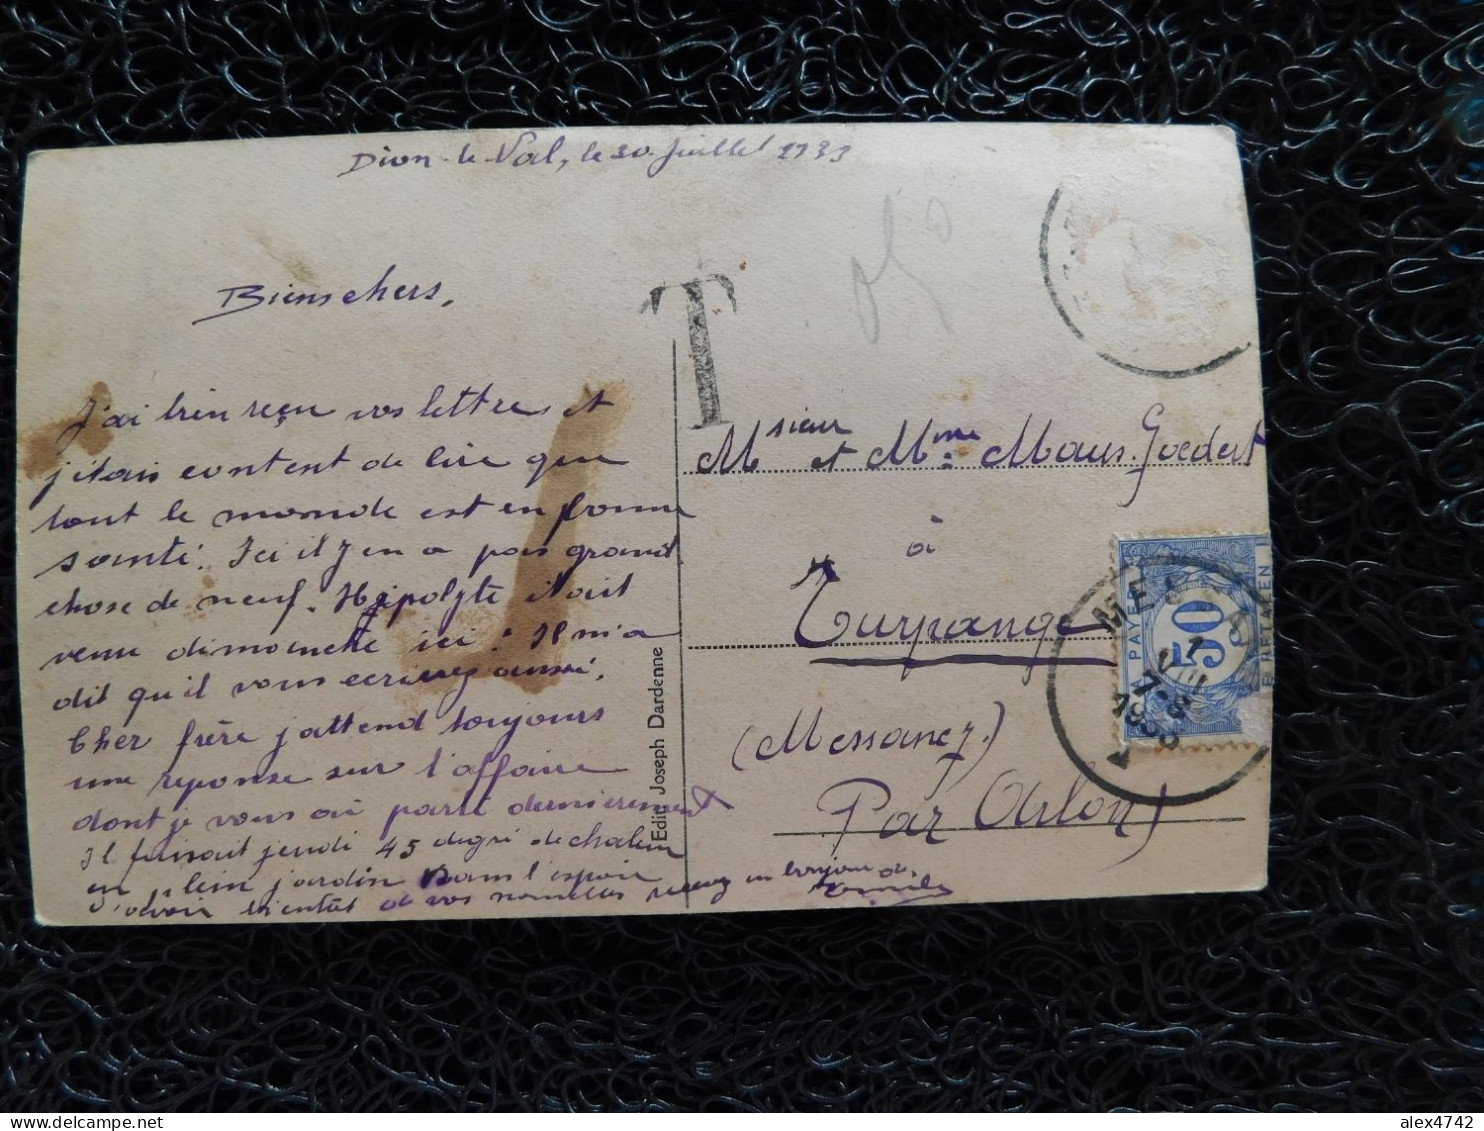 Dion-le-Val, le 30 juillet 1933
Biens chers,
J'ai bien reçu vos lettres et
j'étais content de lire que
tout le monde est en bonne
santé. Ici il y en a pas grand
chose de neuf. Hipolyte était
venu dimanche ici. Il m'a
dit qu'il vous ecrivez aussi.
Cher frère j'attend toujours
une reponse sur l'affaire
dont je vous ai parlé dernièrement
Il faisait jeudi 45 degré de chaleur
en plein jardin Dans l'espoir
d'avoir bientôt de vos nouvelles recevez un bonjour de
Edit. Joseph Dardenne
T
Msieur et Mme Maus. Goedert
à
Turpange
(Messancy.)
Par Arlon
A PAYER
50
MES
1
VIII
7-8
1933
alex4742